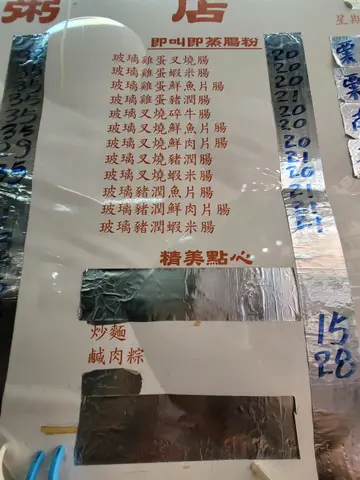 粥 店
星期
即叫即蒸腸粉
玻璃雞蛋叉燒腸 20
玻璃雞蛋蝦米腸 20
玻璃雞蛋鮮魚片腸 21
玻璃雞蛋豬潤腸 20
玻璃叉燒碎牛腸 20
玻璃叉燒鮮魚片腸 20
玻璃叉燒鮮肉片腸 21
玻璃叉燒豬潤腸 21
玻璃叉燒蝦米腸 20
玻璃豬潤魚片腸 21
玻璃豬潤鮮肉片腸 21
玻璃豬潤蝦米腸 21
精美點心
炒麵 15
鹹肉粽 28